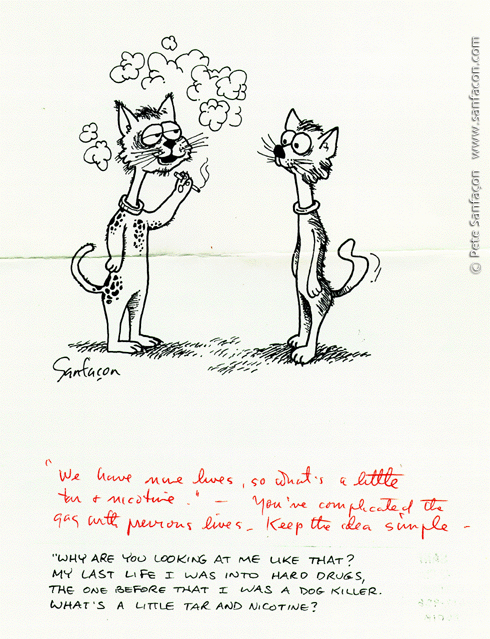 © Pete Sanfaçon www.sanfacon.com
Sanfaçon
"We have nine lives, so what's a little
tar & nicotine." – You've complicated the
gag with previous lives – Keep the idea simple –
"WHY ARE YOU LOOKING AT ME LIKE THAT?
MY LAST LIFE I WAS INTO HARD DRUGS,
THE ONE BEFORE THAT I WAS A DOG KILLER.
WHAT'S A LITTLE TAR AND NICOTINE?